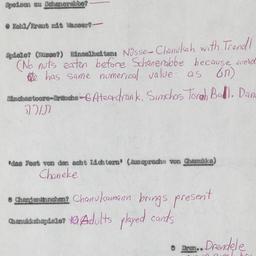 Speisen zu Schanerabbe?
⊕ Kohl/Kraut mit Wasser?
Spiele? (Nüsse?) Einzelheiten: Nüsse - Chanukah with Trendl
(No nuts eaten before Schanerabbe because word
has same numerical value as
Simchastoore-Bräuche - Ateardrank, Simchas Torah Ball. Dan
'das Fest von den acht Lichtern' (Aussprache von Chanukka)
Chaneke
Chanjenännchen? Chanukamann brings present
Chanukkahspiele? Adults played cards
Dren.. Drendele